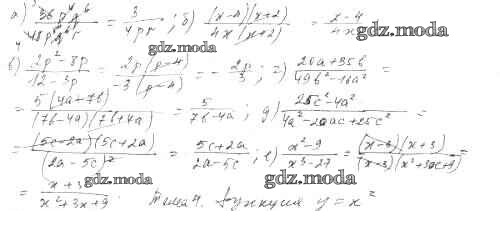 а) 36 p⁴ q⁶ / 48 p⁵ q⁷ = 3 / 4pq ; б) (x-4)(x+2) / 4x(x+2) = x-4 / 4x
gdz.moda
gdz.moda
в) 2p²-8p / 12-3p = 2p(p-4) / -3(p-4) = - 2p / 3 ; г) 20a+35b / 49b²-16a² =
= 5(4a+7b) / (7b-4a)(7b+4a) = 5 / 7b-4a ; д) 25c²-4a² / 4a²-20ac+25c² =
gdz.moda
gdz.moda
= (5c-2a)(5c+2a) / (2a-5c)² = 5c+2a / 2a-5c ; е) x²-9 / x³-27 = (x-3)(x+3) / (x-3)(x²+3x+9) =
gdz.moda
gdz.moda
= x+3 / x²+3x+9 . Тема 4. Функция y=x²
gdz.moda